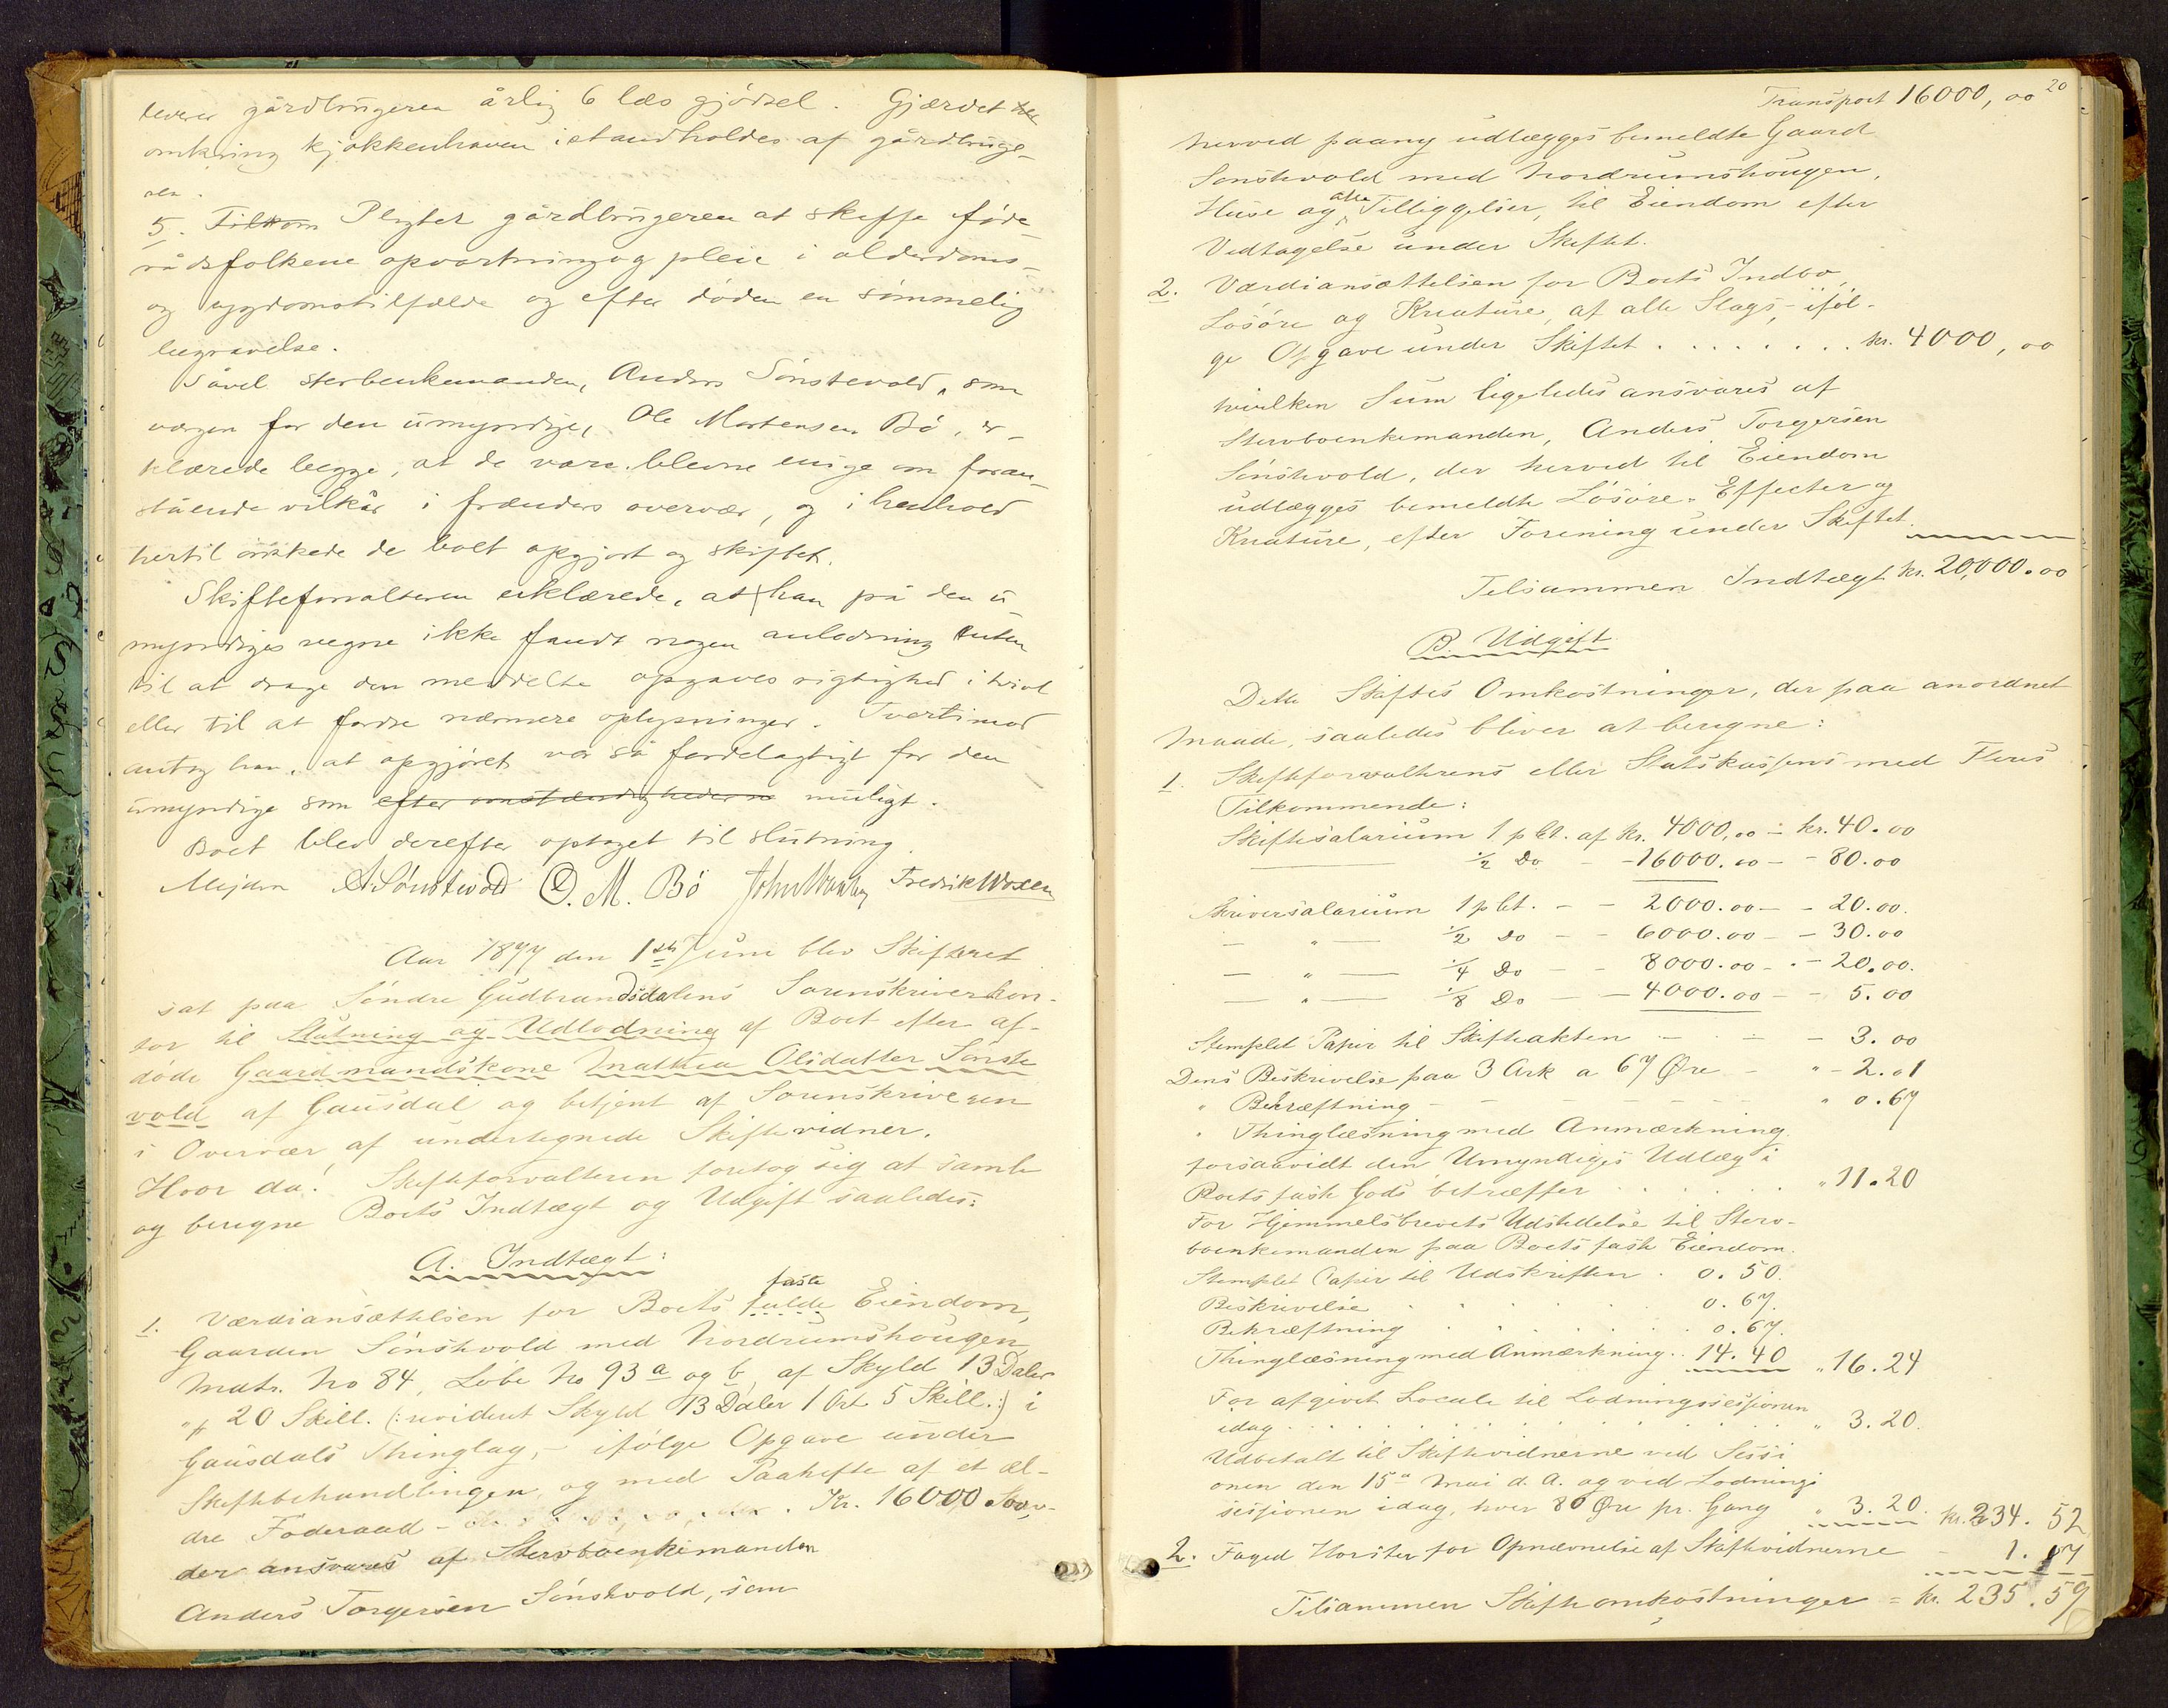 leverer gårdbrugeren årlig 6 læs gjødsel. Gjærdet
omkring kjøkkenhaven istandholdes af gårdbruge-
ren.
5. Tilkom Pligter gårdbrugeren at skaffe føde-
rådsfolkene opvartning og pleie i alderdoms-
og sygdomstilfælde og efter døden en sømmelig
begravelse.
Såvel sterbenkemanden, Anders Sønstevold, som
værgen for den umyndige, Ole Mortensen Bø, er-
klærede begge, at de vare blevne enige om foran-
stående vilkår i frænders overvær, og i henhold
hertil ønskede de boet opgjort og skiftet.
Skifteforvalteren erklærede, at han på den u-
myndiges vegne ikke fandt nogen anledning enten
til at drage den meddelte opgaves rigtighed i tvivl
eller til at fordre nærmere oplysninger. Tvertimod
antog han, at opgjøret var så fordelagtigt for den
umyndige som efter omstændighederne muligt.
Boet blev derefter optaget til slutning.
Mejdem A. Sønstevold O. M. Bø Fredrik Woxen
Aar 1877 den 1ste Juni blev Skifteret
sat paa Søndre Gudbrandsdalens Sorenskriverkon-
tor til Slutning og Udlodning af Boet efter af-
døde Gaardmandskone Mathea Olsdatter Sønste
vold af Gausdal og betjent af Sorenskriveren
i Overvær af undertegnede Skiftevidner.
Hvor da: Skifteforvalteren foretog sig at samle
og beregne Boets Indtægt og Udgift saaledes:
A. Indtægt:
1. Værdiansættelsen for Boets fulde faste Eiendom,
Gaarden Sønstevold med Nordrumshougen
Matr. No 84, Løbe No 93 a og b af Skyld 13 Daler
" # 20 Skill. (: revideret Skyld 13 Daler 1 Ort 5 Skill. :) i
Gausdals Thinglag, - ifølge Opgave under
Skiftebehandlingen, og med Paahefte af et æl-
dre Føderaad - Kr. 16000
der ansvares af Stervboenkemanden
Anders Torgersen Sønstevold, som
20
Transport 16000,00
herved paany udlægges bemeldte Gaard
Sønstevold med Nordrumshougen,
Huse og alle Tilliggelser, til Eiendom efter
Vedtagelse under Skiftet.
2. Værdiansættelsen for Boets Indbo,
Løsøre og Kreature, af alle Slags, - iføl-
ge Opgave under Skiftet . . . . . . . kr. 4000,00
hvilken Sum ligeledes ansvares af
Stervboenkemanden, Anders Torgersen
Sønstevold, der herved til Eiendom
udlægges bemeldte Løsøre-Effecter og
Kreature, efter Forening under Skiftet.
Tilsammen Indtægt kr. 20,000.00
B. Udgift
Dette Skiftes Omkostninger, der paa anordnet
Maade, saaledes bliver at beregne:
1. Skifteforvalterens eller Statskassens med Fleres
Tilkommende:
Skiftesalarium 1 pCt. af kr. 4000,00 - kr. 40.00
1/2 Do - - 16000.00 - - 80.00
Skriversalarium 1 pCt. - - 2000.00 - - 20.00.
— " — 1/2 Do - - 6000.00 - - 30.00
— " — 1/4 Do - - 8000.00 - - 20.00.
— " — 1/8 Do - - 4000.00 - - 5.00
Stemplet Papir til Skifteakten - - - 3.00
Dens Beskrivelse paa 3 Ark a 67 Øre - " - 2.01
" Bekræftning - - - - - - " 0.67
" Thinglæsning med Anmærkning
forsaavidt den Umyndiges Udlæg i
Boets faste Gods betræffer . . . . . " 11.20
For Hjemmelsbrevets Udstedelse til Sterv-
boenkemanden paa Boets faste Eiendom.
Stemplet Papir til Udskriften . 0.50.
Beskrivelse . . . . . 0.67.
Bekræftning . . . . . 0.67.
Thinglæsning med Anmærkning . . 14.40 " 16.24
For afgivet Locale til Lodningssessionen
idag . . . . . . . . . . " 3.20.
Udbetalt til Skiftevidnerne ved Sessi
onen den 15de Mai d. A. og ved Lodnings
sessionen idag, hver 80 Øre pr. Gang " 3.20 kr. 234.52
2. Foged Horster for Opnævnelse af Skiftevidnerne - 1.07
Tilsammen Skifteomkostninger = kr. 235.59